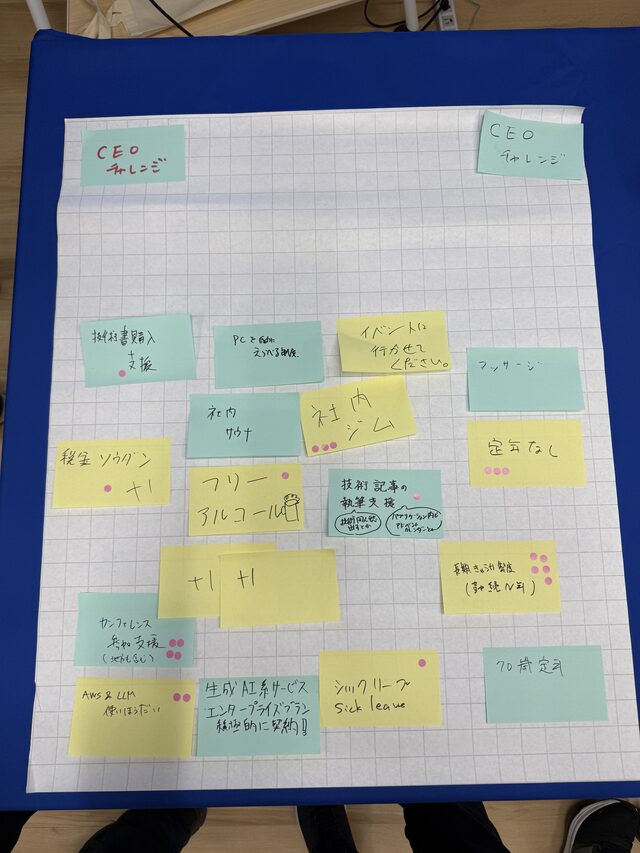 CEO
チャレンジ
CEO
チャレンジ
技術書購入
支援
PCを自由に
えらべる制度
イベントに
行かせて
ください。
マッサージ
社内
サウナ
社内
ジム
定年なし
税金ソウダン
+1
フリー
アルコール
技術記事の
執筆支援
技術同人誌
出すとか
アドベント
カレンダーとか
+1
+1
長期きゅうか制度
(勤続N年)
カンファレンス
参加支援
(地方も含む)
AWS & LLM
使いほうだい
生成AI系サービス
エンタープライズプラン
積極的に契約!!
シックリーブ
sick leave
70歳定年